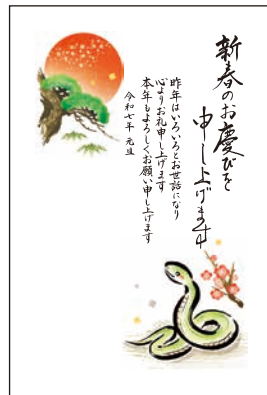 新春のお慶びを
申し上げます
昨年はいろいろとお世話になり
心よりお礼申し上げます
本年もよろしくお願い申し上げます
令和七年 元旦